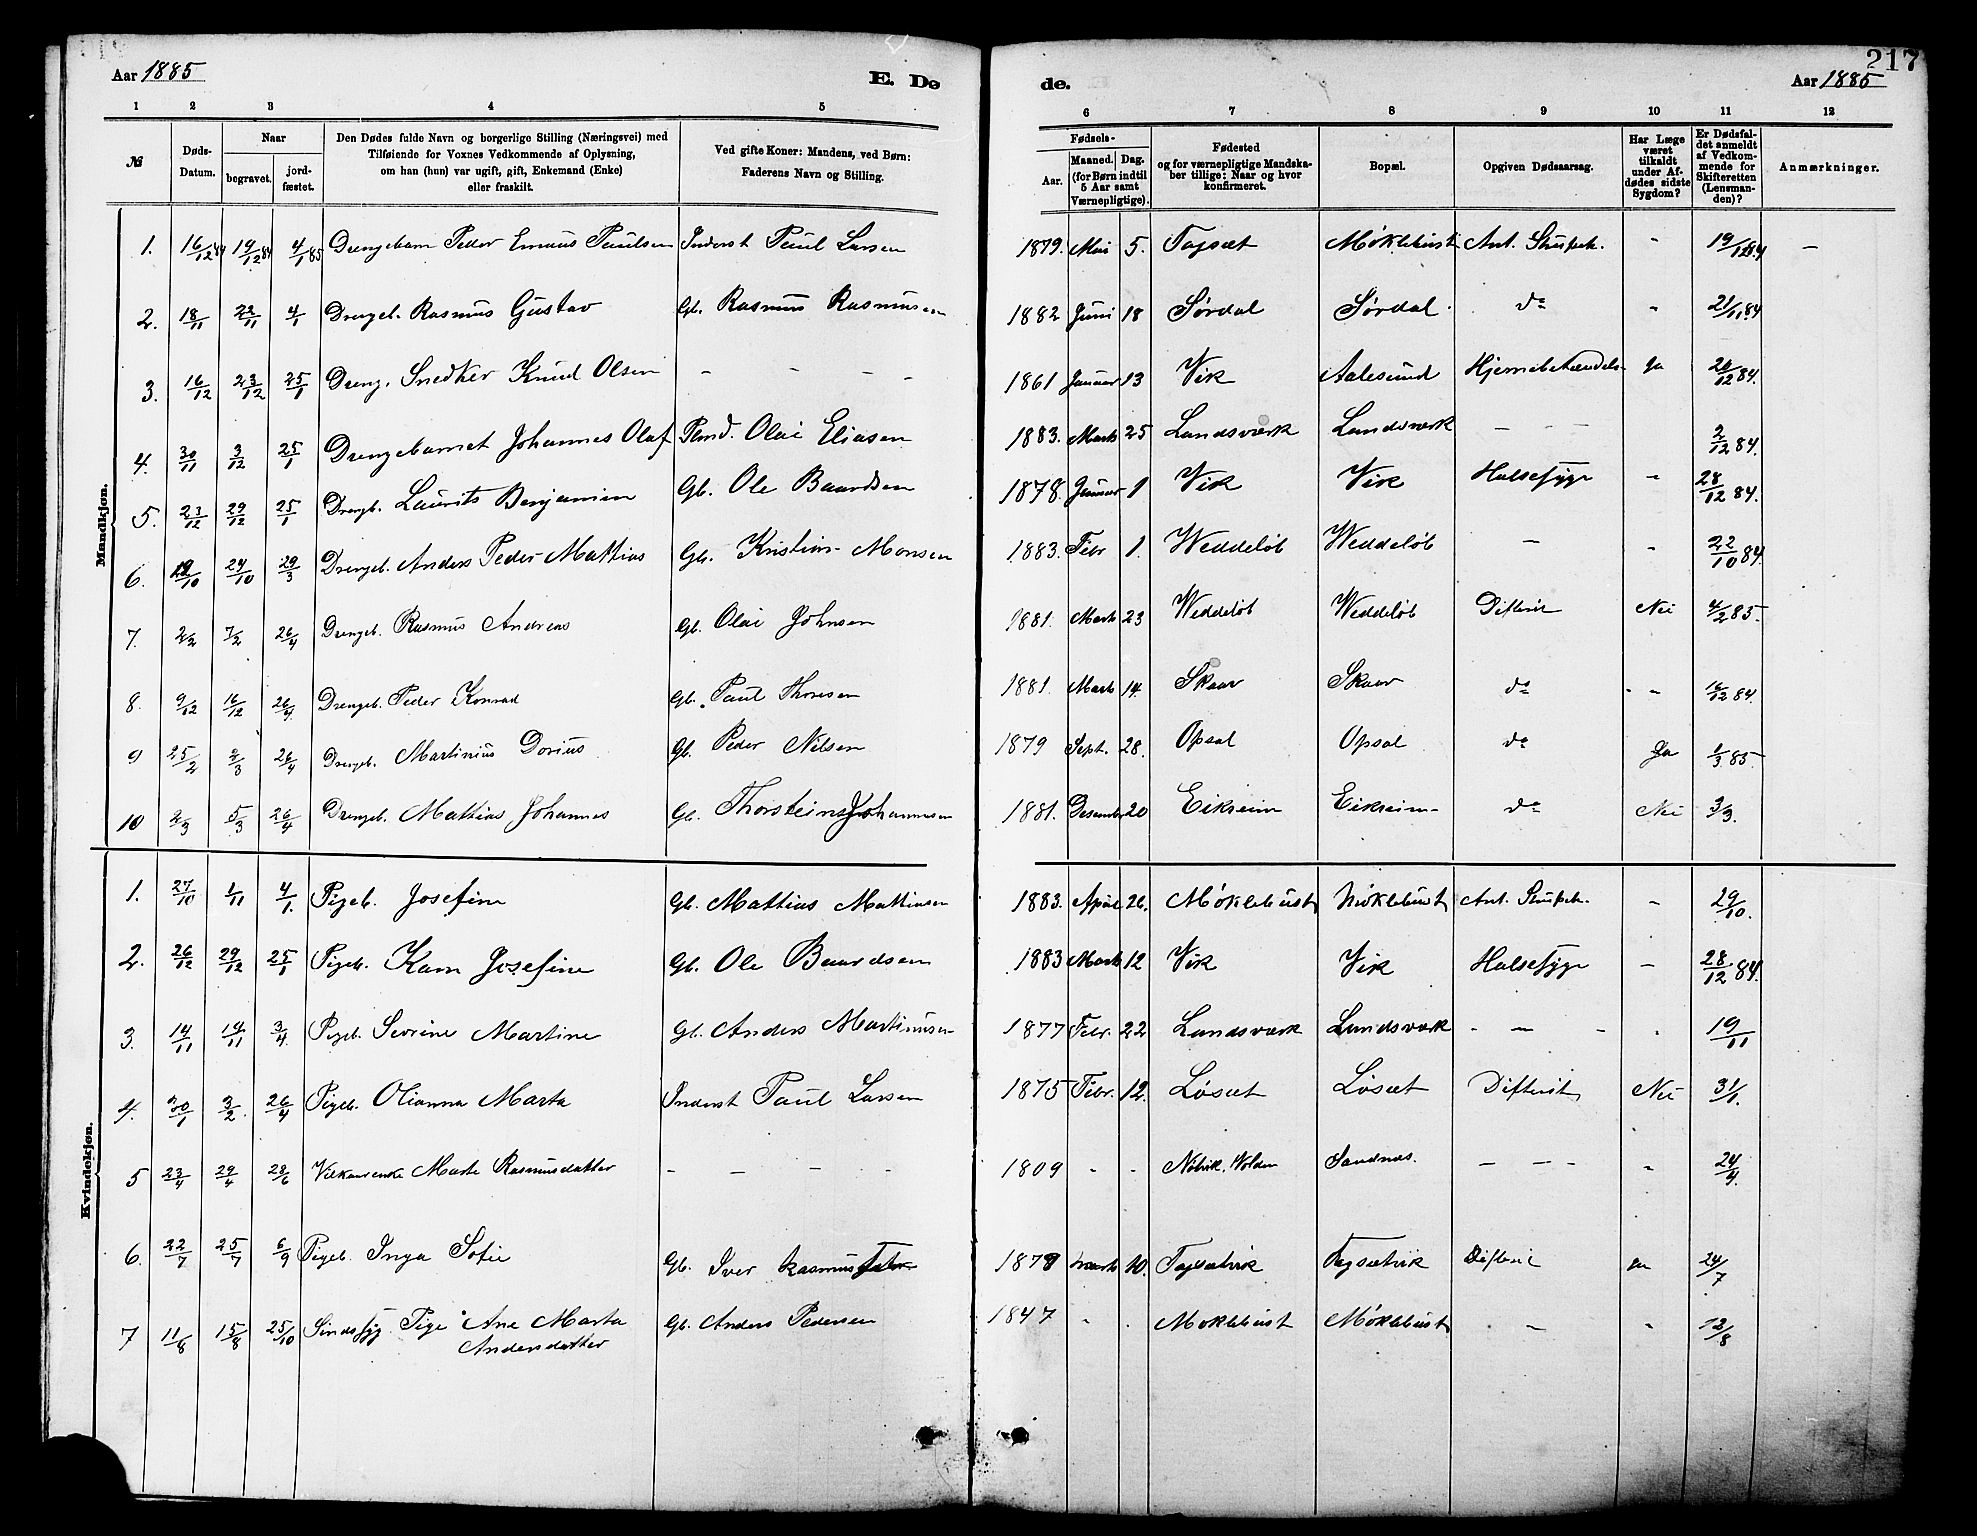 217
Aar 1885
E. Dø
de.
Aar 1885
1 2 3 4 5 6 7 8 9 10 11 12
№
Døds-Datum.
Naar
begravet.
jord-fæstet.
Den Dødes fulde Navn og borgerlige Stilling (Næringsvei) med
Tilføiende for Voxnes Vedkommende af Oplysning,
om han (hun) var ugift, gift, Enkemand (Enke)
eller fraskilt.
Ved gifte Koner: Mandens, ved Børn:
Faderens Navn og Stilling.
Fødsels-
Aar.
Maaned. Dag.
(for Børn indtil
5 Aar samt
Værnepligtige).
Fødested
og for værnepligtige Mandska-
ber tillige: Naar og hvor
konfirmeret.
Bopæl.
Opgiven Dødsaarsag.
Har Læge
været
tilkaldt
under Af-
dødes sidste
Sygdom?
Er Dødsfal-
det anmeldt
af Vedkom-
mende for
Skifteretten
(Lensman-
den)?
Anmærkninger.
Mandkjøn.
1. 16/12 84 19/12 84 4/1 85 Drengebarn Peder Emaus Paulsen Inderst Paul Larsen 1879. Mai 5. Tagsæt Møklebust Ant. Strupeh. - 19/12 84 -
2. 18/11 23/11 4/1 Drengeb. Rasmus Gustav Gb. Rasmus Rasmusen 1882 Juni 18 Sørdal Sørdal. do " 21/11 84
3. 16/12 23/12 25/1 Dreng. Snedker Knud Olsen - - - - 1861 Januar 13 Vik Aalesund Hjernebetændels. ja 20/12 84.
4. 30/11 3/12 25/1 Drengebarnet Johannes Olaf Olai Eliasen 1883. Marts 25 Landsværk Landsværk - - - 2/12 84.
5. 23/12 29/12 25/1 Drengb. Laurits Benjamin Gb. Ole Baardsen 1878. Januar 1 Vik Vik Halsesyge - 28/12 84.
6. 19/10 24/10 29/3 Drengeb. Anders Peder Mattias Gb. Kristian Monsen 1883. Febr 1. Weddeløb Weddeløb - " 22/10 84.
7. 2/2 7/2 26/4 Drengeb. Rasmus Andreas Gb. Olai Johnsen 1881. Marts 23 Weddeløb Weddeløb Difteri Nei 4/2 85.
8. 9/12 16/12 26/4 Drengeb. Peder Konrad Gb. Paul Thoresen 1881. Marts 14. Skaar Skaar do - - 16/12 84.
9 25/2 2/3 26/4 Drengeb. Martinius Dorius Gb. Peder Nilsen 1879 Sept. 28. Opsal Opsal do Ja 1/3 85.
10 2/3 5/3 26/4 Drengeb. Mattias Johannes Gb. Thorstein Johannesen 1881. Desember 20 Eikreim Eikreim do Nei 3/3.
Kvindekjøn.
1. 27/10 1/11 4/1. Pigeb. Josefine Gb. Mattias Mattiasen 1883. April 26. Møklebust Møklebust Ant. Strupeh. - 29/10.
2. 26/12 29/12 25/1 Pigeb. Karn Josefine Gb. Ole Baardsen 1883 Marts 12 Vik Vik Halsesyge - 28/12 84.
3. 14/11 19/11 3/4. Pigeb. Sevrine Martine Gb. Anders Martinusen 1877 Febr. 22 Landsværk Landsværk - - - . 19/11
4. 30/1 3/2. 26/4 Pigeb. Olianna Marta Inderst Paul Larsen 1875 Febr. 12. Løsæt Løsæt Difterit Nei 31/1.
5 23/4 29/4 28/6 Vilkaarenke Marte Rasmusdatter - - - - 1809 - - Nibvik. Volden Sandnæs. - - - " 24/4.
6. 22/7 25/7 6/9 Pigeb. Inga Sofie Gb. Iver Rasmus 1879 Marts 10. Tagsætvik Tagsætvik Difteri ja 24/7
7 11/8 15/8 25/10 Sindssyg Pige Ane Marta Gb. Anders Pedersen 1847 - . Møklebust Møklebust - " 12/8
Andersdatter